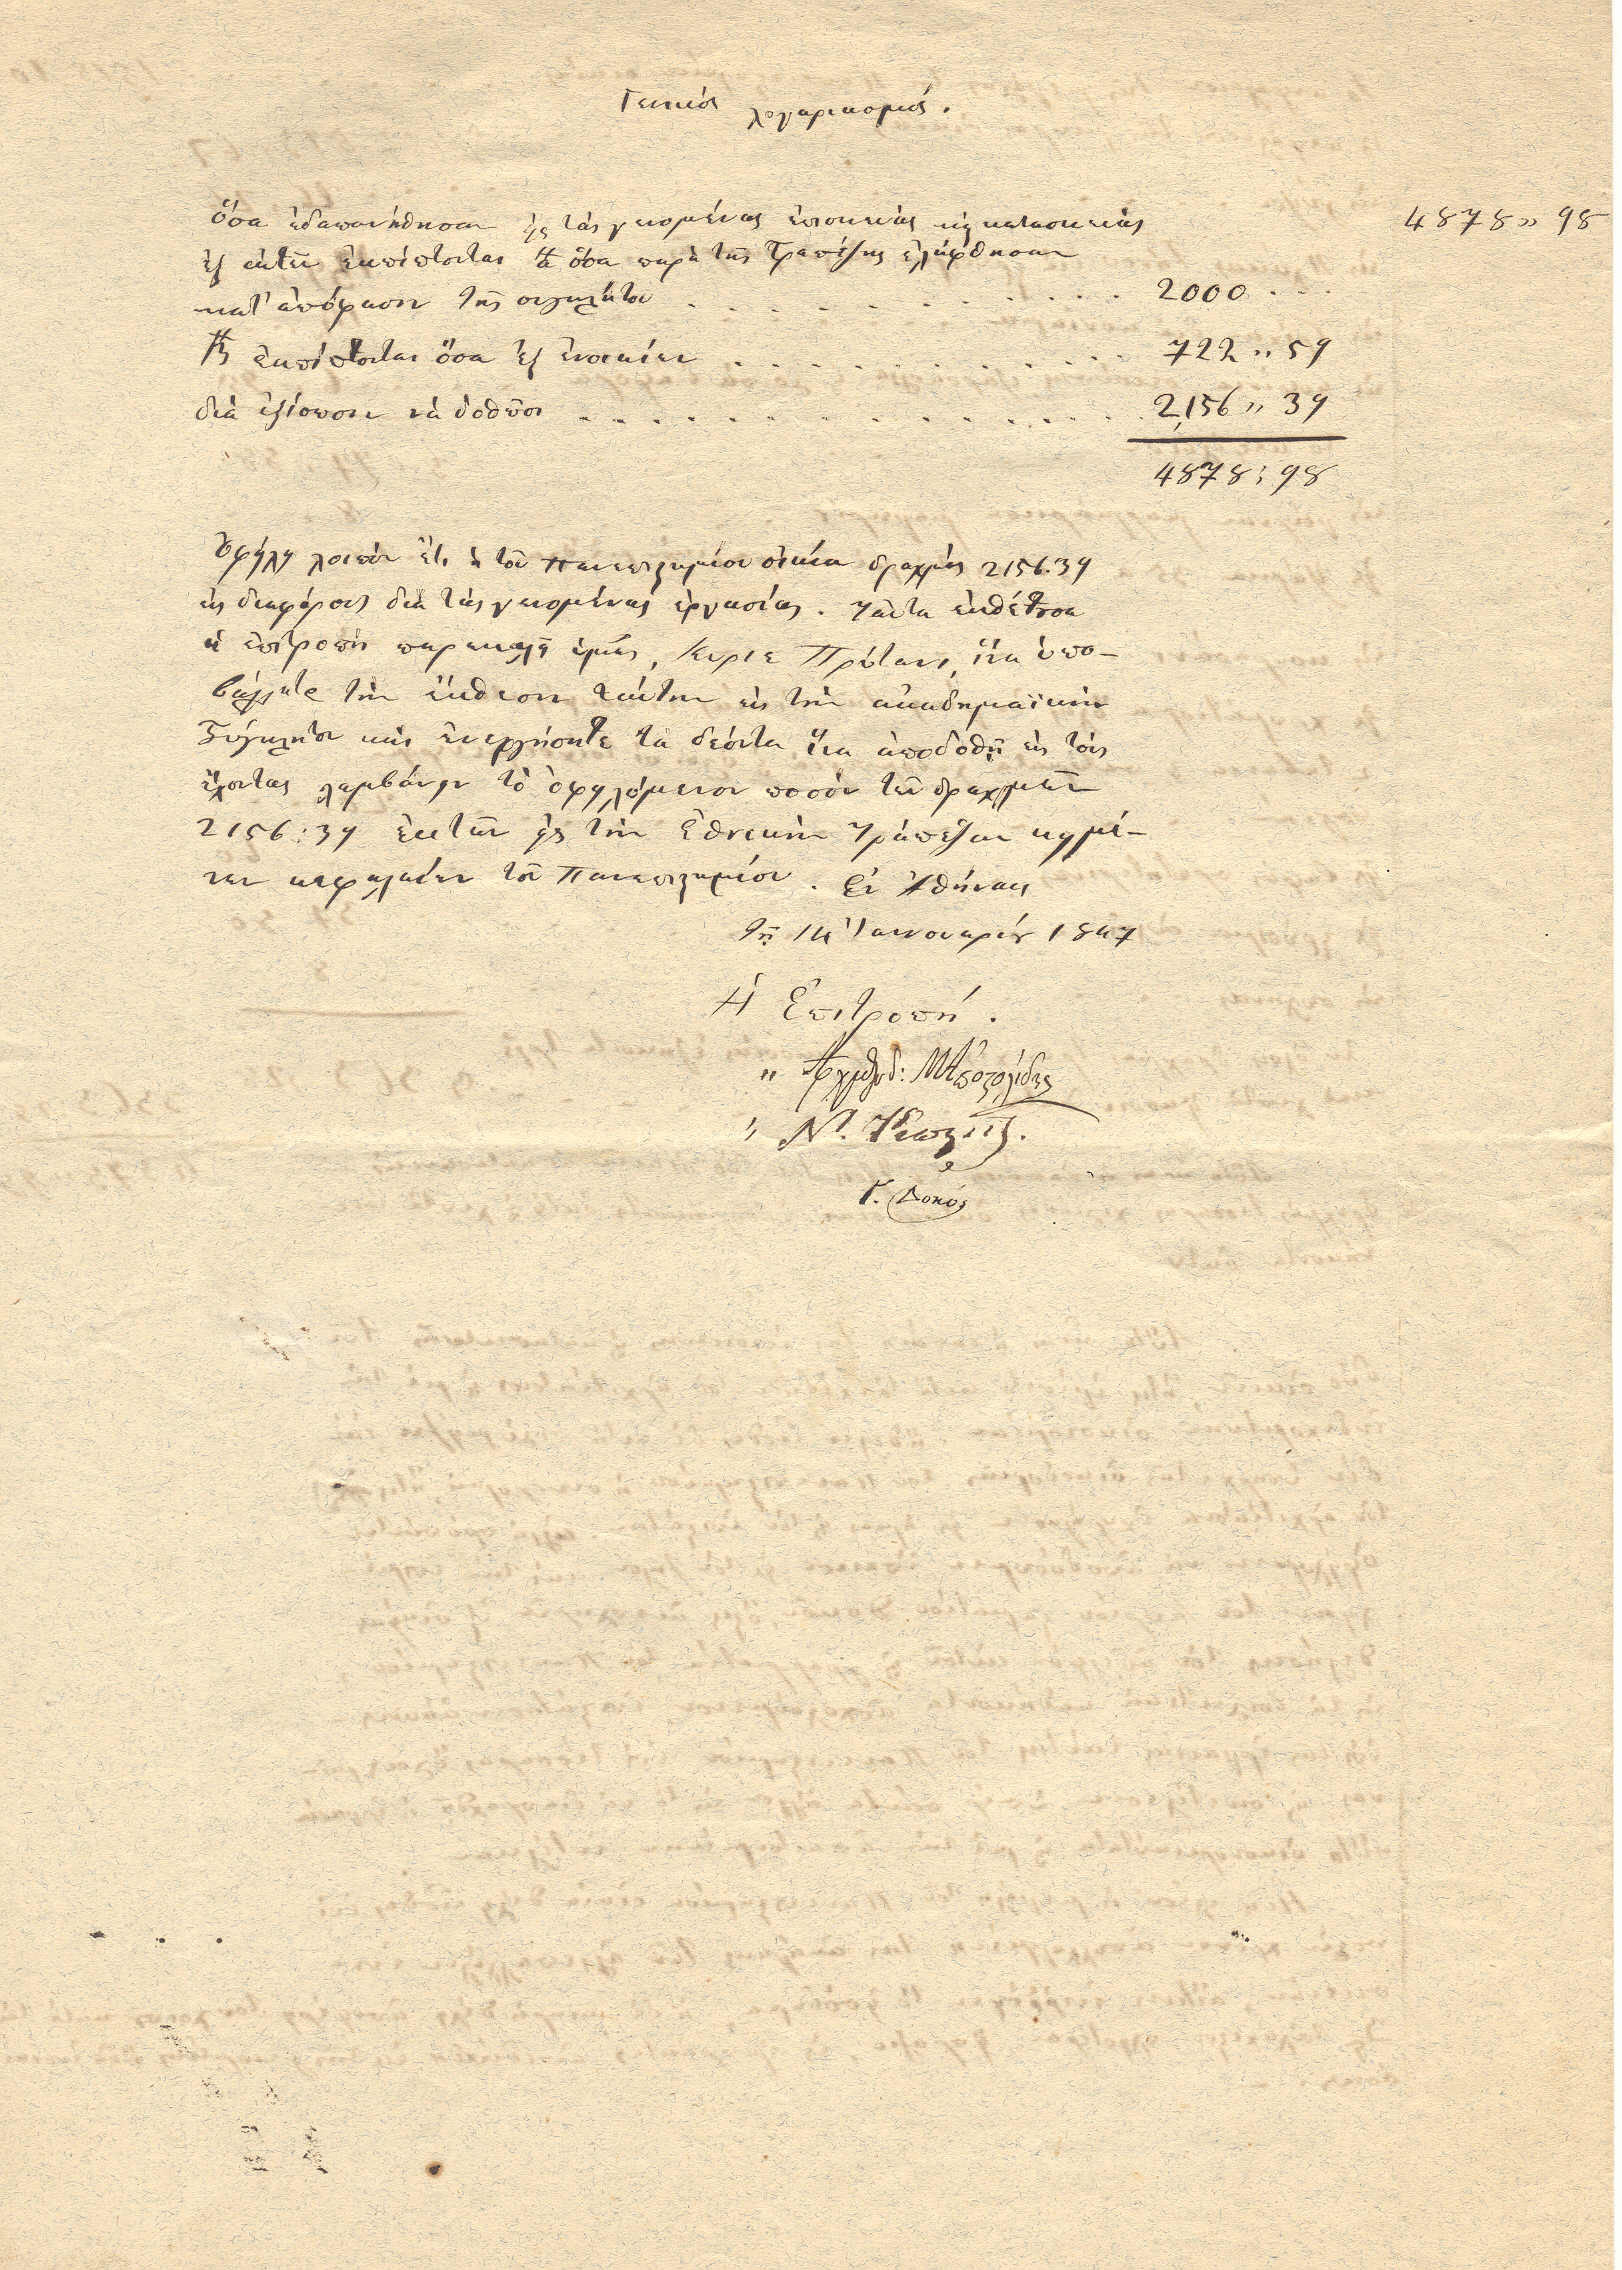 Γενικὸς λογαριασμός.
ὅσα ἐδαπανήθησαν εἰς τὰς γενομένας ἐπισκευὰς καὶ κατασκευὰς 4878 » 98
ἐξ αὐτῶν ἐκπίπτονται τὰ ὅσα παρὰ τῆς Τραπέζης ἐλήφθησαν
κατ' ἀπόφασιν τῆς συγκλήτου . . . . . . . . . . . 2000 . . .
ἐκπίπτονται ὅσα ἐξ ἐνοικίων . . . . . . . . . . . 722 » 59
διὰ ἐξίσωσιν νὰ δοθῶσι . . . . . . . . . . . . . . 2,156 » 39
4878 : 98
Ὀφείλει λοιπὸν ἔτι ἡ τοῦ Πανεπιστημίου οἰκία δραχμὰς 2156.39
εἰς διαφόρους διὰ τὰς γενομένας ἐργασίας. Ταῦτα ἐκθέτουσα
ἡ ἐπιτροπὴ παρακαλεῖ ὑμᾶς, Κύριε Πρύτανι, ἵνα ὑπο-
βάλλητε τὴν ἔκθεσιν ταύτην εἰς τὴν ἀκαδημαϊκὴν
Σύγκλητον καὶ ἐνεργήσητε τὰ δέοντα ἵνα ἀποδοθῇ εἰς τοὺς
ἔχοντας λαμβάνειν τὸ ὀφειλόμενον ποσὸν τῶν δραχμῶν
2156:39 ἐκ τῶν εἰς τὴν Ἐθνικὴν Τράπεζαν κειμέ-
νων κεφαλαίων τοῦ Πανεπιστημίου. Ἐν Ἀθήναις
τῇ 14 Ἰαννουαρίου 1847
Ἡ Ἐπιτροπή.
" Μ Ἀποστολίδης
" Ν.
Γ. Δοκός